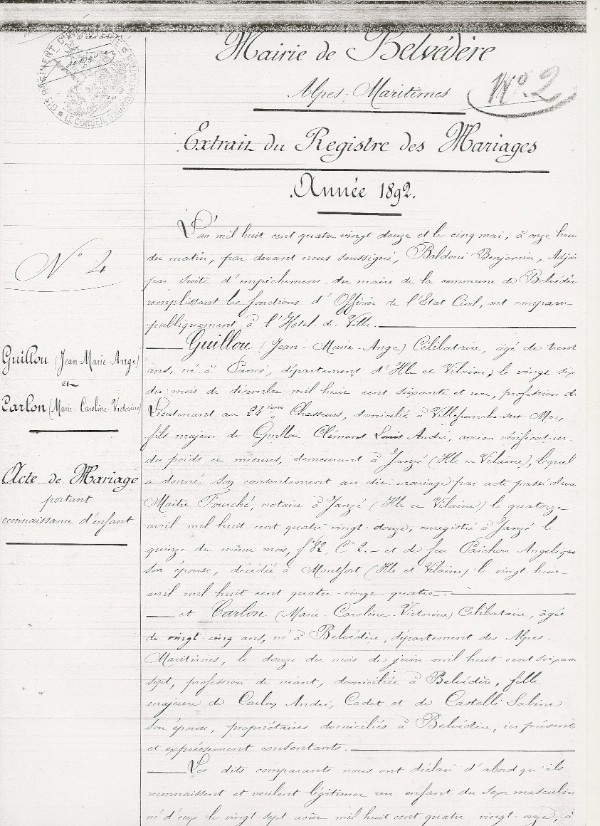 Mairie de Belvédère
Alpes-Maritimes
N° 2
Extrait du Registre des Mariages
Année 1892.
N° 4
Guillou (Jean Marie Ange)
et
Carlon (Marie Caroline Victorine)
Acte de Mariage
portant
connaissance d'enfant
L'an mil huit cent quatre vingt douze et le cinq mai, à onze heu
du matin, par devant nous soussigné, Baldoni Benjamin, Adjoi
par suite d'empêchement du maire de la commune de Belvédèr
remplissant les fonctions d'Officier de l'Etat Civil, ont comparu
publiquement à l'Hôtel de Ville.
Guillou (Jean-Marie-Ange) Célibataire, âgé de trent
ans, né à département d'Ille et Vilaine, le vingt six
du mois de mil huit cent soixante et un, profession de
Lieutenant au 24ème Chasseurs, domicilié à Villefranche sur Mer,
fils majeur de Guillou Clément Louis André, ancien vérificateur
des poids et mesures, demeurant à Janzé (Ille et Vilaine), lequel
a donné son consentement au dit mariage par acte passé devan
Maître Fouché, notaire à Janzé (Ille et Vilaine) le quatorze
avril mil huit cent quatre vingt-douze, enregistré à Janzé le
quinze du même mois, et de feu Angélique
son épouse, décédée à Montfort (Ille et Vilaine) le vingt
avril mil huit cent quatre-vingt quatre
et Carlon (Marie-Caroline-Victorine) Célibataire, âgée
de vingt cinq ans, né à Belvédère, département des Alpes-
Maritimes, le douze du mois de juin mil huit cent soixan
sept, profession de néant, domiciliée à Belvédère, fille
majeure de Carlon André, Cadet et de Castelli Sabine
son épouse, propriétaires domiciliés à Belvédère, ici présents
et expressément consentants.
Les dits comparants nous ont déclaré d'abord qu'ils
reconnaissent et veulent légitimer un enfant du sexe masculin
né d'eux le vingt sept août mil huit cent quatre vingt-onze, à